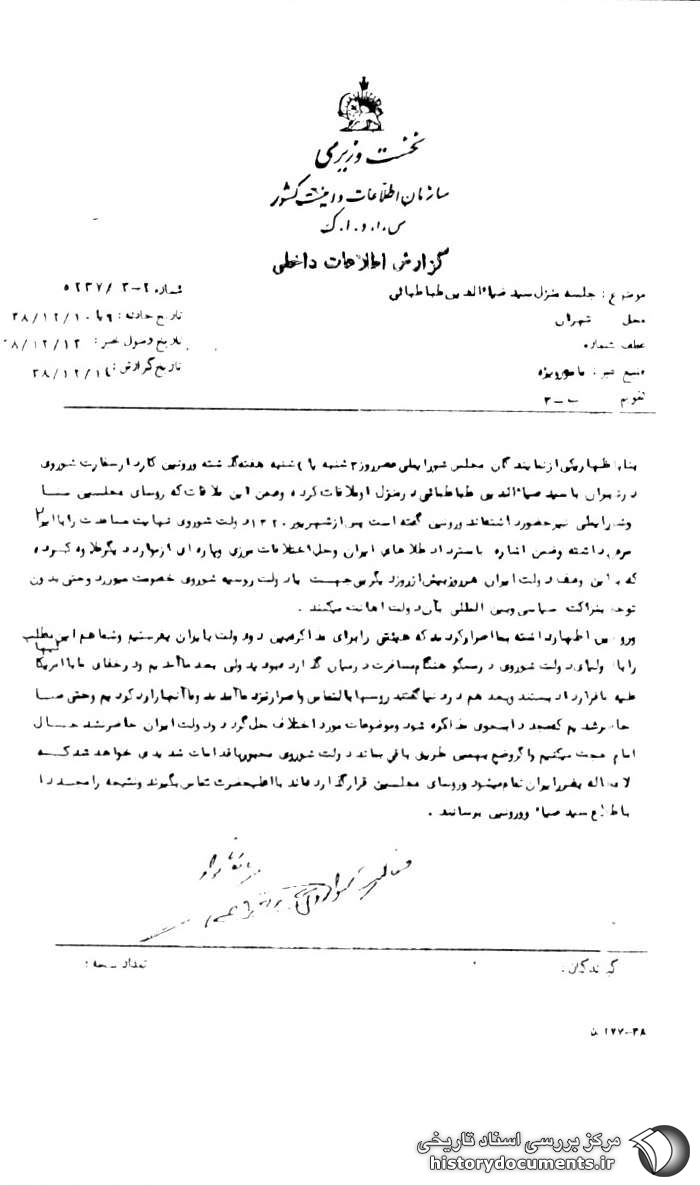 نخست وزیری
سازمان اطلاعات و امنیت کشور
س.ا.و.ا.ک
گزارش اطلاعات داخلی
موضوع : جلسه منزل سید ضیاءالدین طباطبائی
شماره ۲-۳ / ۵۲۳۷
محل تهران
تاریخ حادثه : ۹ یا ۳۸/۱۲/۱۰
عطف شماره
تاریخ وصول خبر : ۳۸/۱۲/۱۳
منبع خبر : مامور ویژه
تاریخ گزارش : ۳۸/۱۲/۱۶
تقویم ب - ۳
بنا باظهار یکی از نمایندگان مجلس شورایملی عصر روز ۳ شنبه یا ۴ شنبه هفته گذشته ورونین کاردار سفارت شوروی
در تهران با سید ضیاءالدین طباطبائی در منزل او ملاقات کرده و ضمن این ملاقات که روسای مجلسین سنا
و شورایملی نیز حضور داشته‌اند ورونین گفته است پس از شهریور ۱۳۲۰ دولت شوروی نهایت مساعدت را با ایران
داشته و ضمن اشاره باسترداد طلاهای ایران و حل اختلافات مرزی و پاره ای از موارد دیگر علاوه کرده
که با این وصف دولت ایران هر روز بیش از روز دیگر بی‌جهت با دولت روسیه شوروی خصومت میورزد و حتی بدون
توجه بنزاکت سیاسی و بین المللی بآن دولت اهانت میکنند .
ورونین اظهار داشته بما اصرار کردید که هیئتی را برای مذاکره بین دو دولت بایران بفرستیم و شما هم این مطلب
را با اولیای دولت شوروی در مسکو هنگام مسافرت در میان گذارده بودید ولی بعد ما آمدیم و رفقای ما با امریکا
علیه ما قرارداد بستند و بعد هم در دنیا گفتند روسها با التماس و اصرار نزد ما آمدند و ما آنها را رد کردیم و حتی ما
حاضر شدیم که مجددا بنحوی مذاکره شود و موضوعات مورد اختلاف حل گردد و دولت ایران حاضر نشد حال
اتمام حجت میکنیم و اگر وضع بهمین طریق باقی بماند دولت شوروی مجبور باقدامات شدیدی خواهد شد که
لامحاله بضرر ایران تمام میشود و روسای مجلسین قرار گذارده‌اند با اعلیحضرت تماس بگیرند و نتیجه را مجددا
باطلاع سید ضیاء و ورونین برسانند .
گیرندگان :
تعداد نسخه :
۱۲۷-۳۸
مرکز بررسی اسناد تاریخی
historydocuments.ir